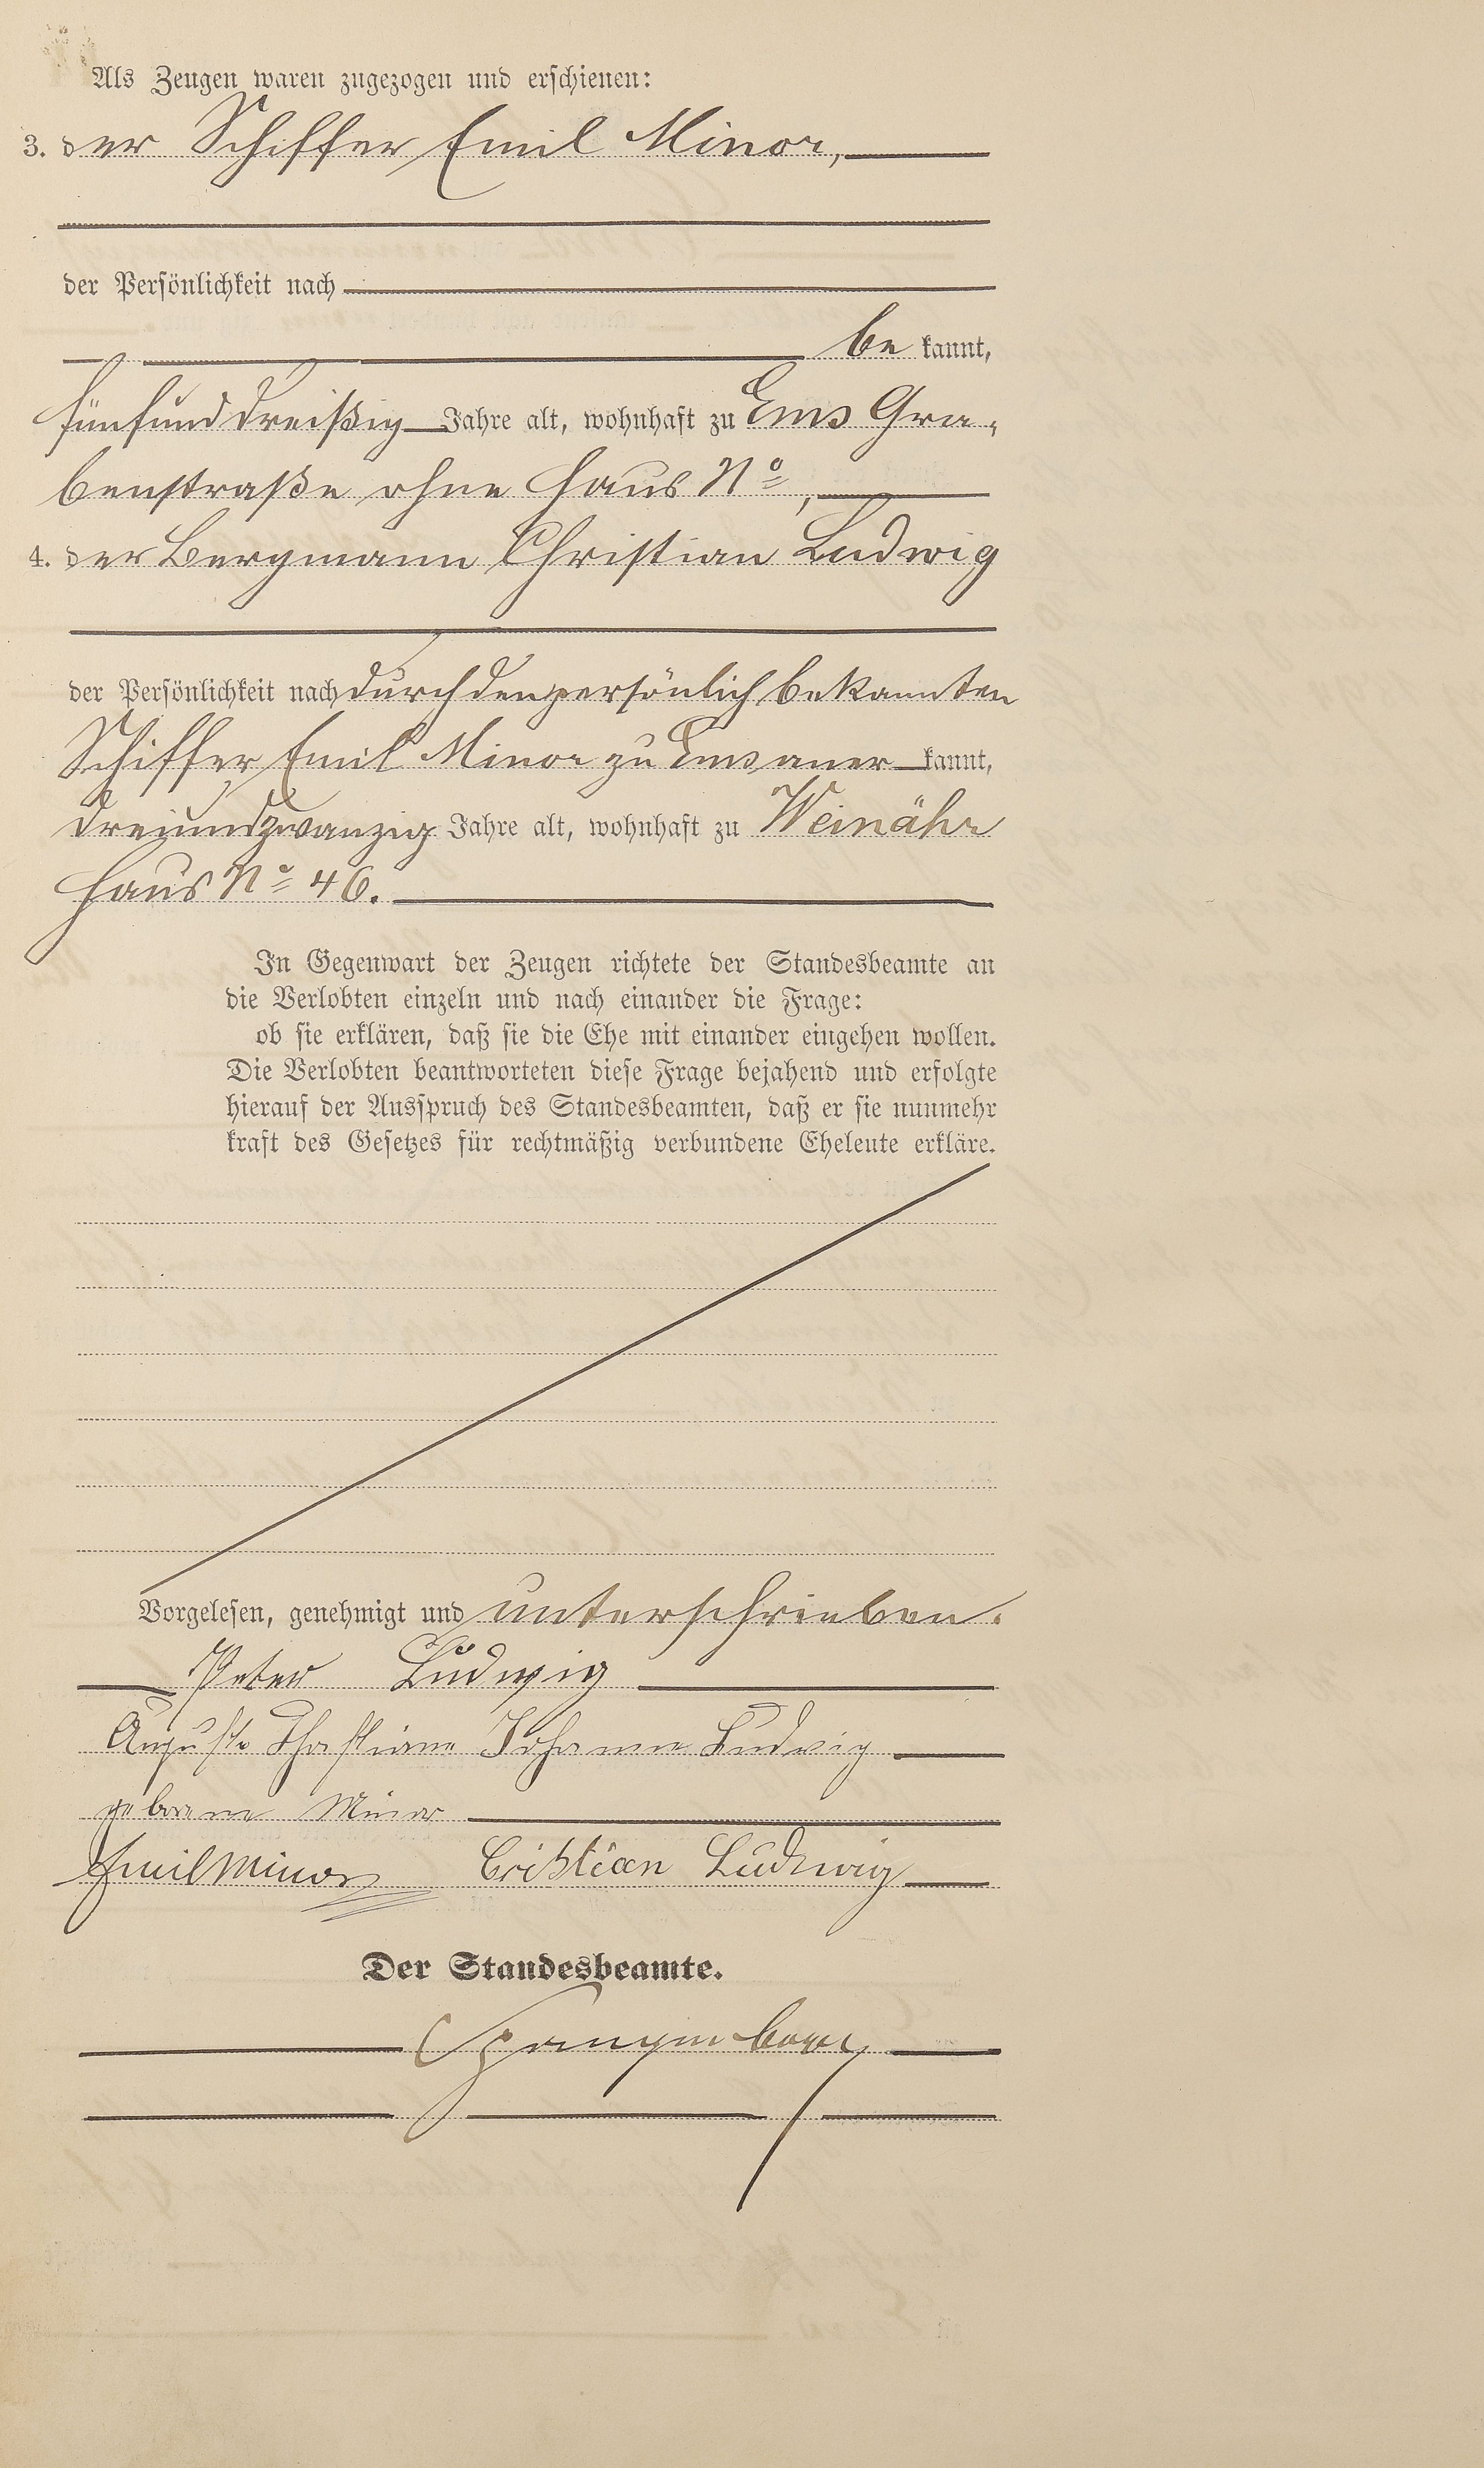 Als Zeugen waren zugezogen und erschienen:
3. der Schiffer Emil Minor,
der Persönlichkeit nach
be kannt,
fünfunddreißig Jahre alt, wohnhaft zu Ems Gra-
benstraße ohne Haus No,
4. der Bergmann Christian Ludwig
der Persönlichkeit nach durch den persönlich bekannten
Schiffer Emil Minor zu Ems aner kannt,
dreiundzwanzig Jahre alt, wohnhaft zu Weinähr
Haus No 46.
In Gegenwart der Zeugen richtete der Standesbeamte an
die Verlobten einzeln und nach einander die Frage:
ob sie erklären, daß sie die Ehe mit einander eingehen wollen.
Die Verlobten beantworteten diese Frage bejahend und erfolgte
hierauf der Ausspruch des Standesbeamten, daß er sie nunmehr
kraft des Gesetzes für rechtmäßig verbundene Eheleute erkläre.
Vorgelesen, genehmigt und unterschrieben.
Peter Ludwig
Auguste Johanne Ludwig
geborene Minor
Emil Minor Cristian Ludwig
Der Standesbeamte.